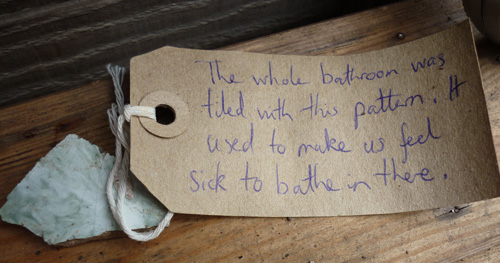 The whole bathroom was
tiled with this pattern. It
used to make us feel
sick to bathe in there.